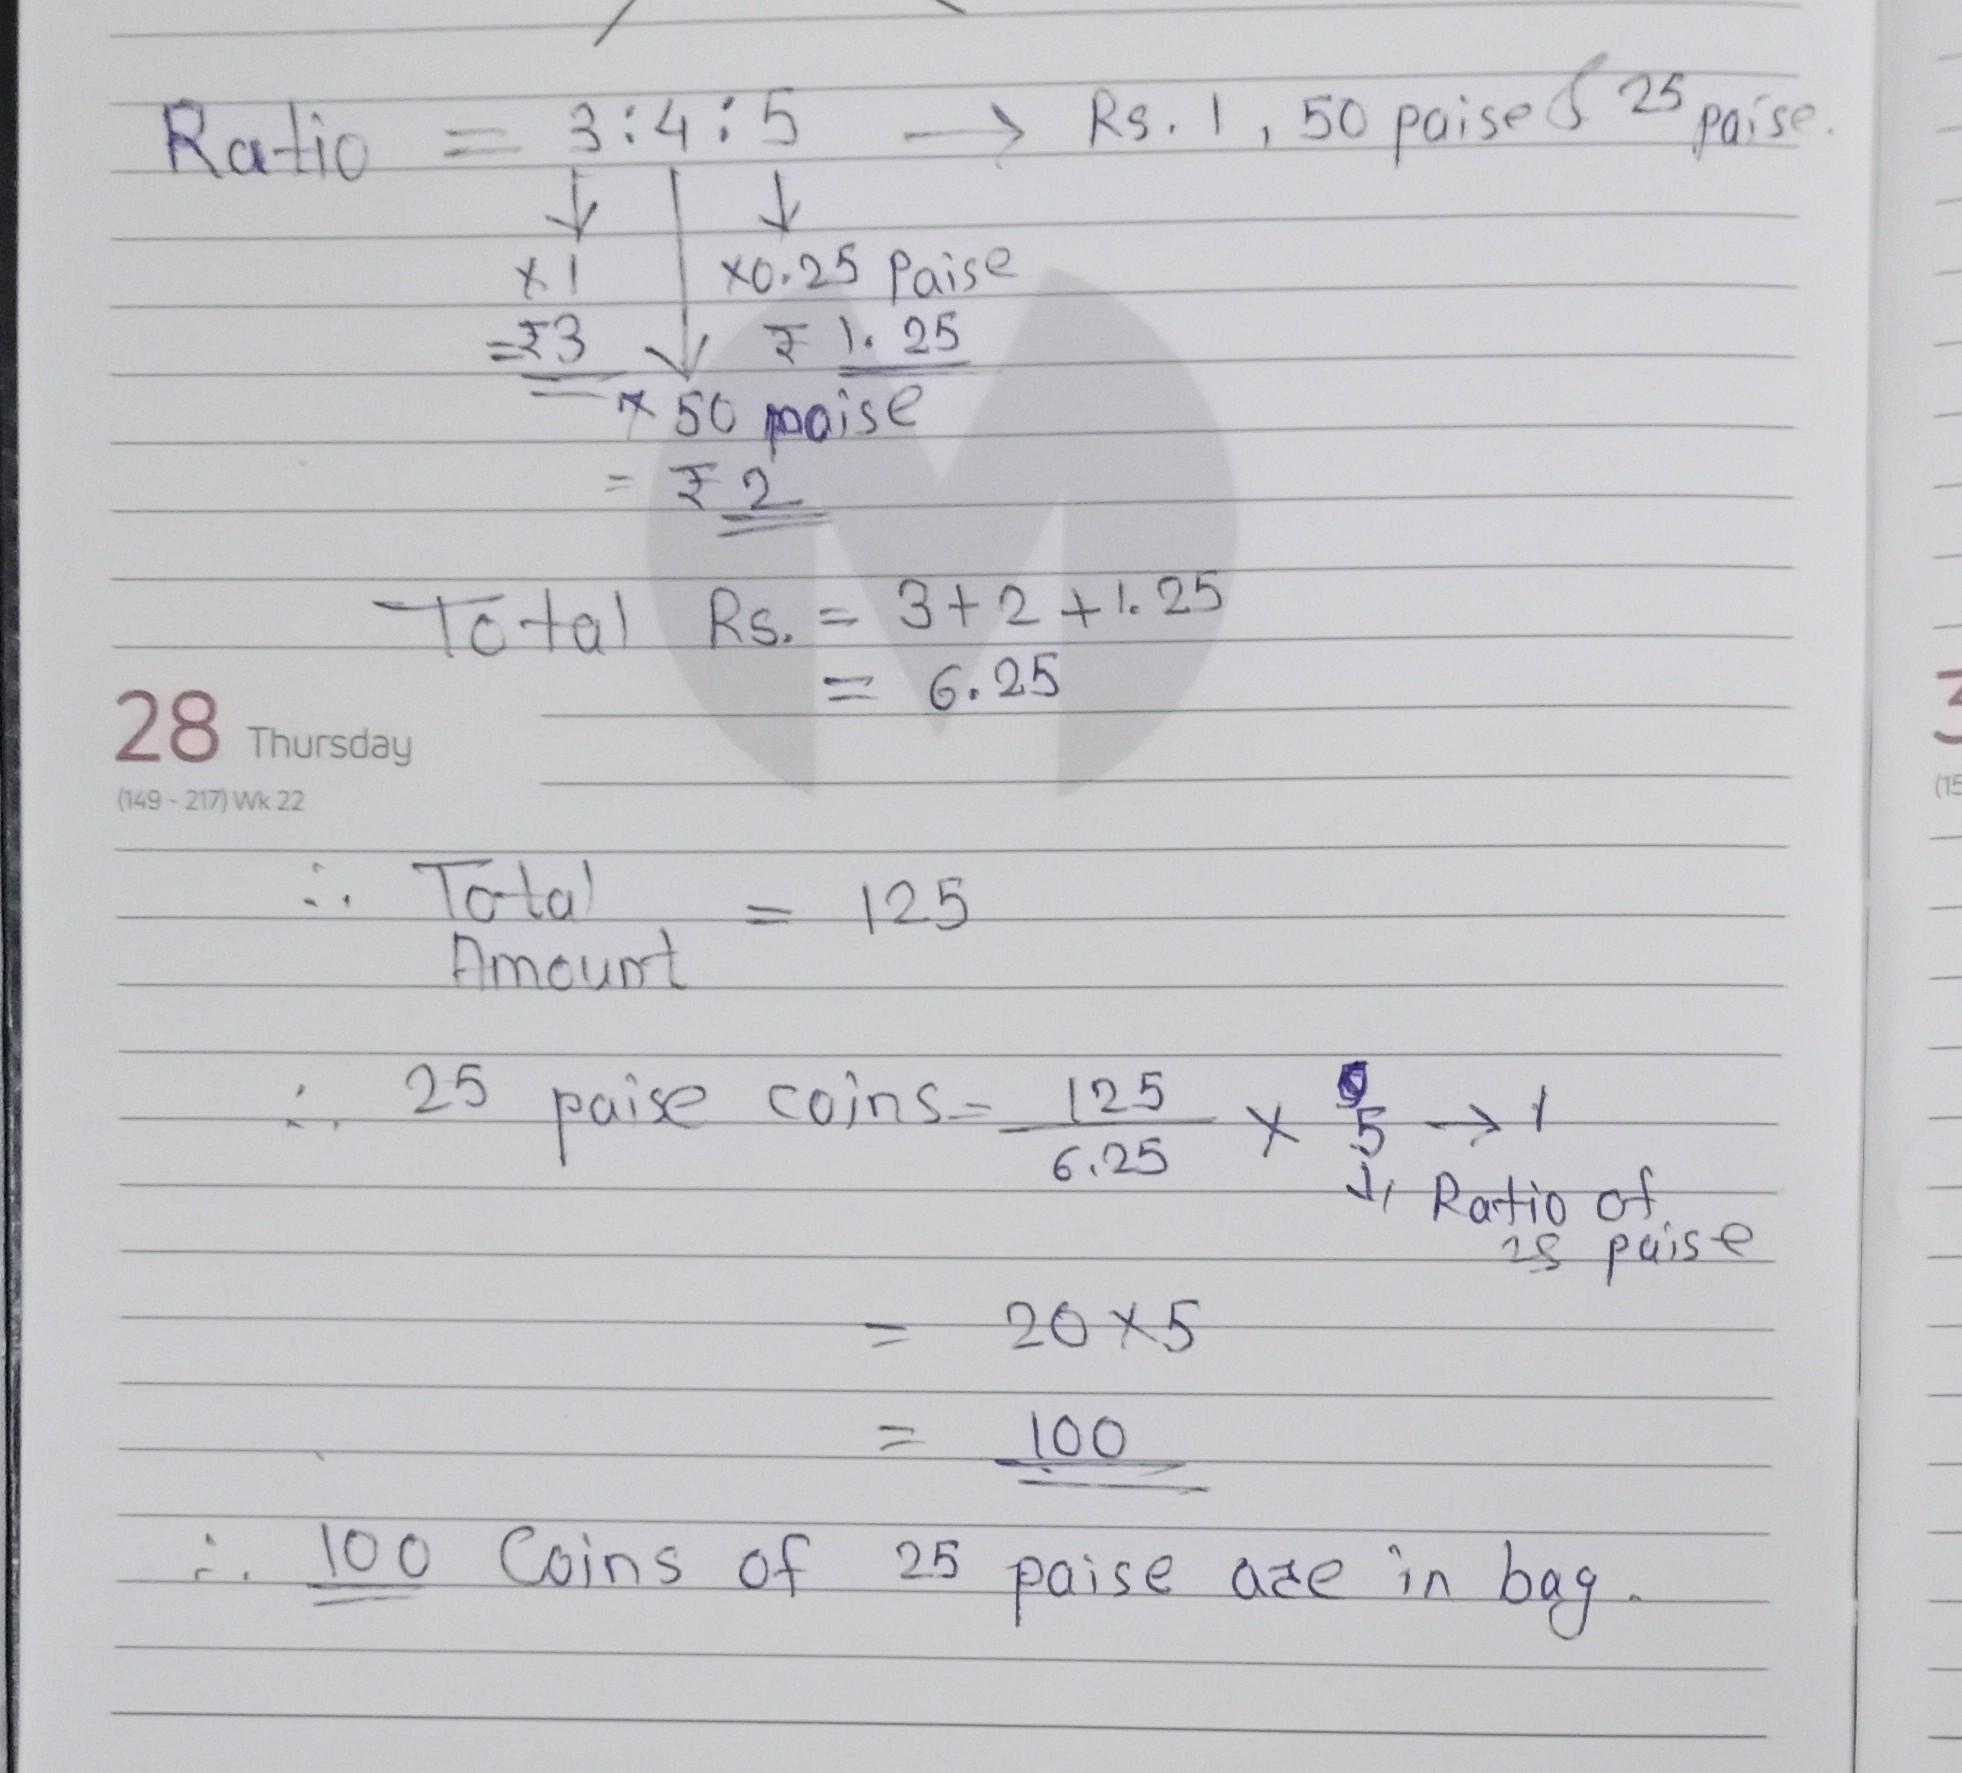 Ratio = 3:4:5 → Rs. 1, 50 paise & 25 paise.
×1 ×0.25 Paise
=₹3 ₹ 1.25
× 50 paise
= ₹ 2
Total Rs. = 3+2+1.25
= 6.25
28 Thursday
(149 - 217) Wk 22
∴ Total Amount = 125
∴ 25 paise coins = 125/6.25 × 5 →
↓ Ratio of
25 paise
= 20×5
= 100
∴ 100 Coins of 25 paise are in bag.